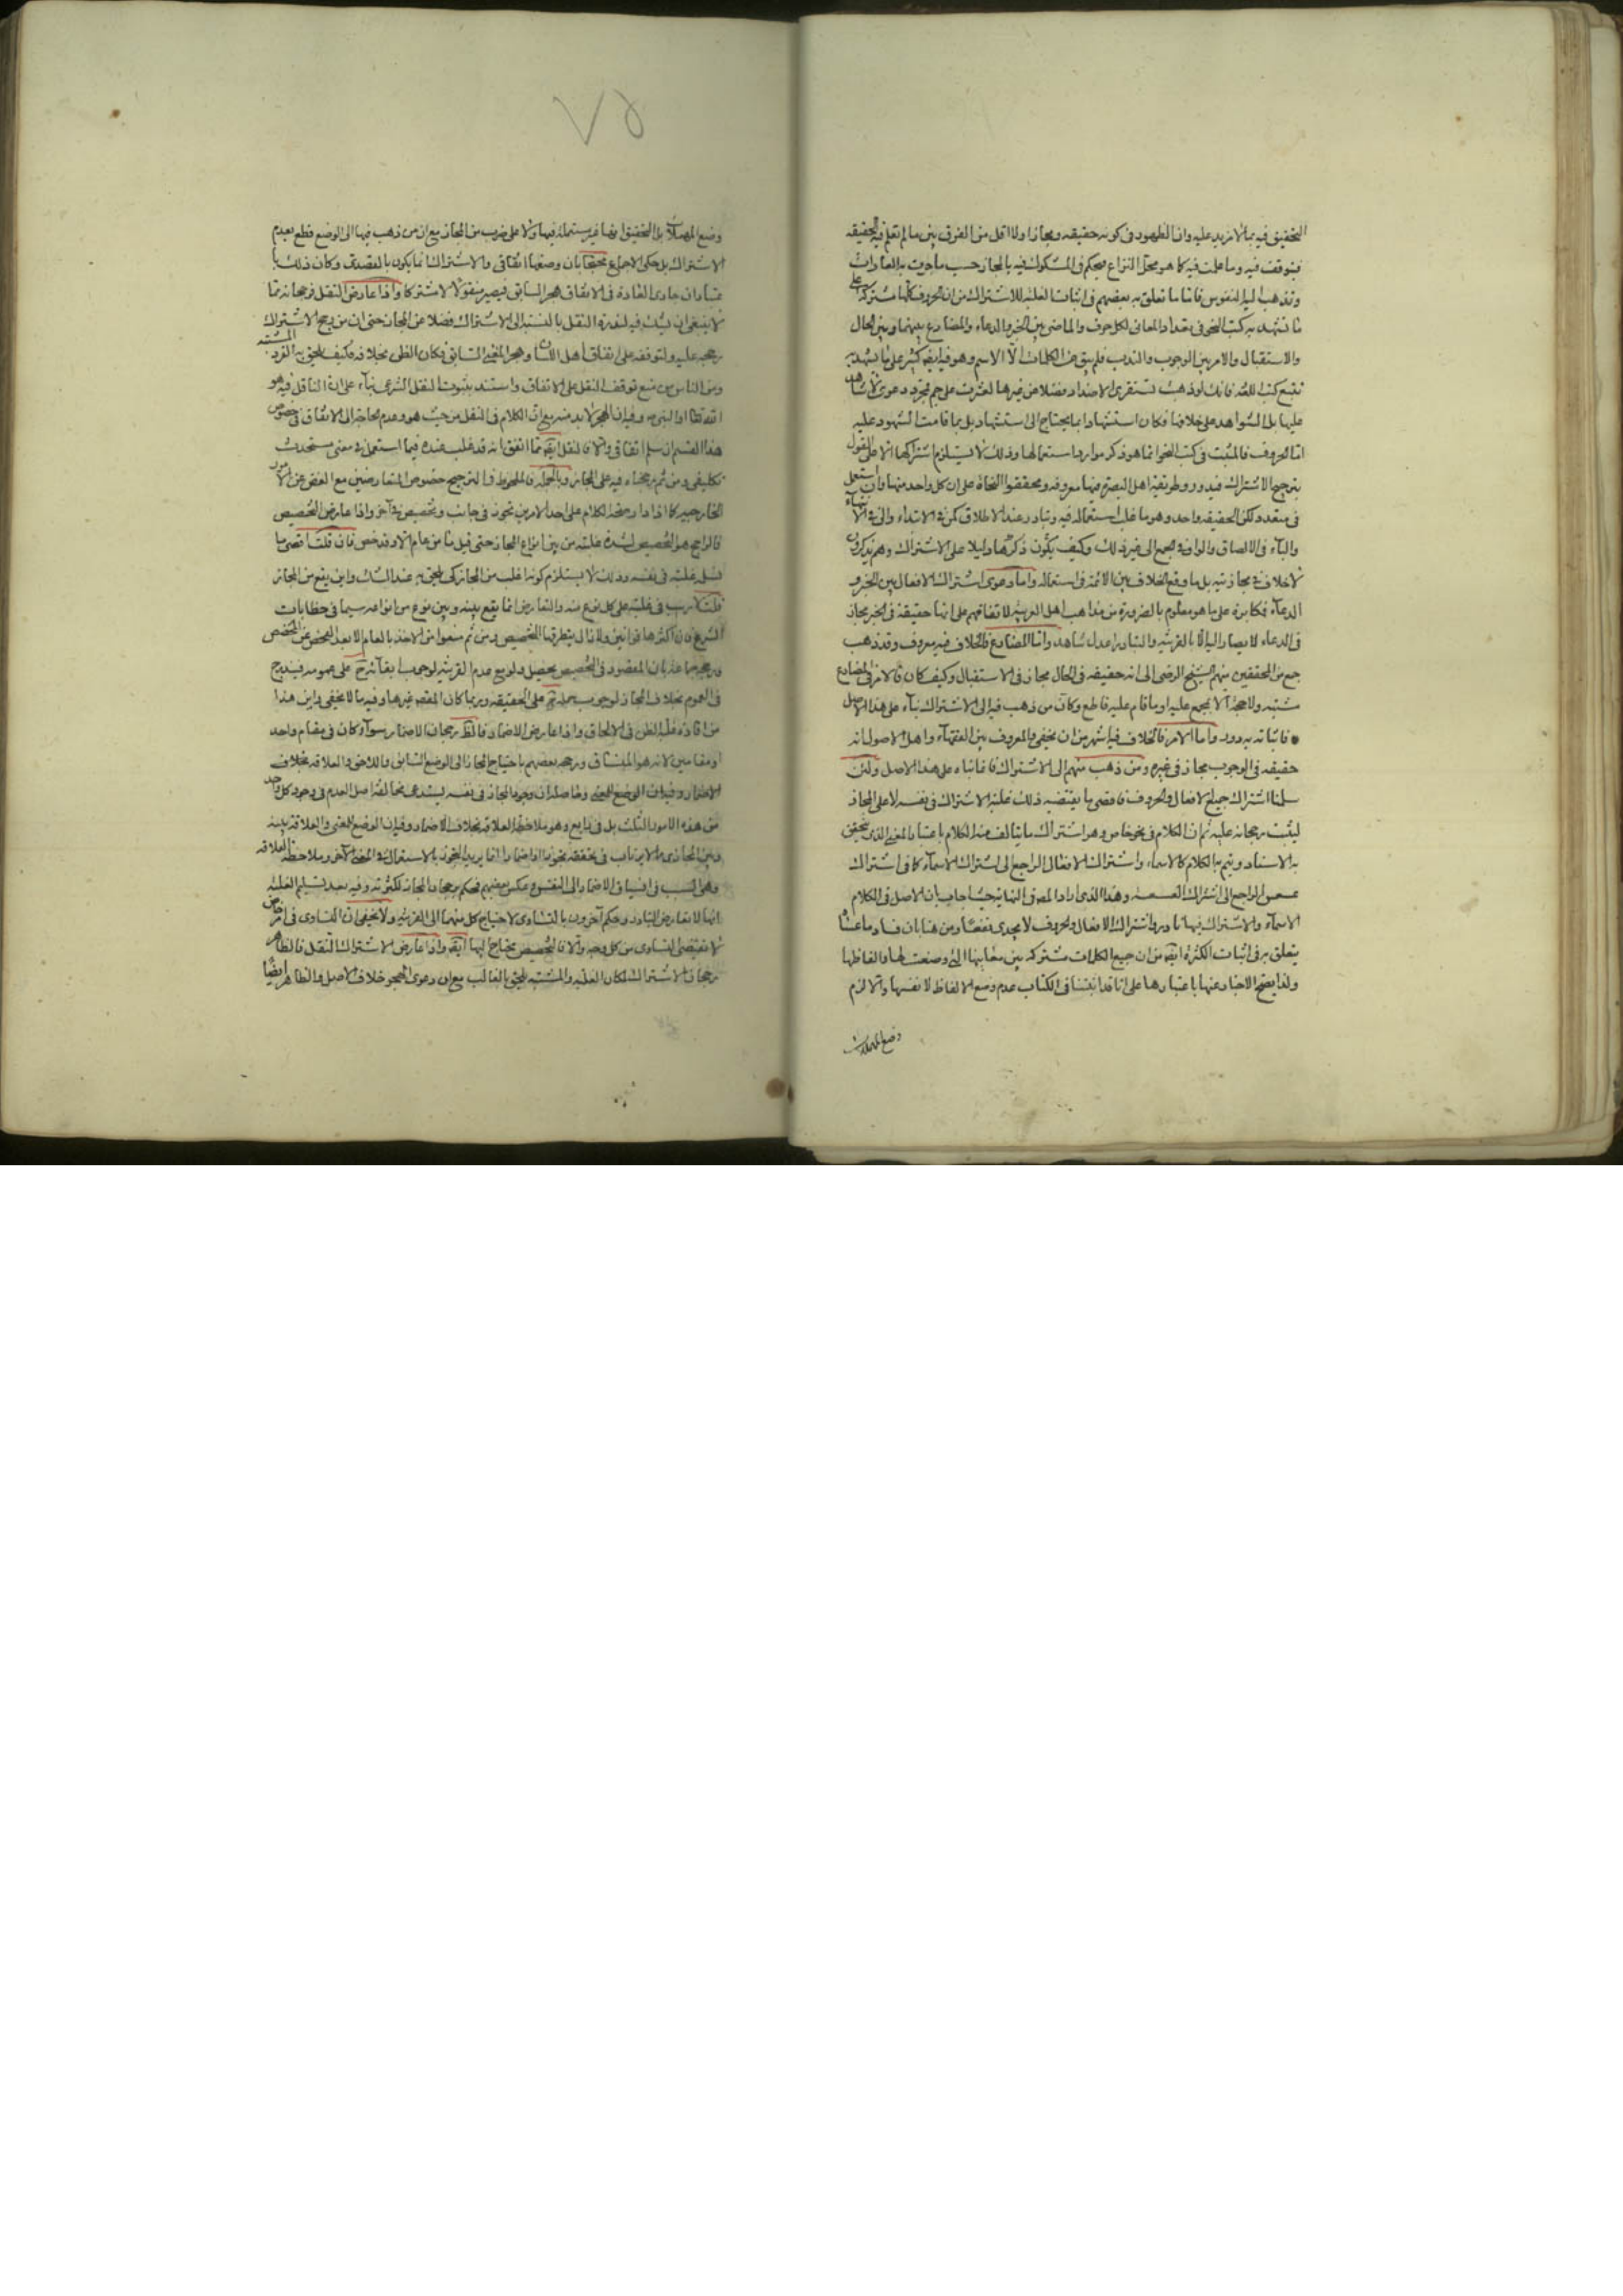 التحقيق فيه بما لا مزيد عليه وان الظهور في كونه حقيقه ومجازا ولا اقل من الفرق بين ما لم تعلم فيه الحقيقه
فيتوقف فيه وما علمت فيه كما هو محل النزاع فيحكم في المشكوك فيه بالمجاز حسب ما جرت به العادات
وتذهب اليه النفوس فاما ما تعلق به بعضهم في اثبات الغلبة للاشتراك من ان الحروف كلها مشتركة على
ما تشهد به كتب النحو في تعداد المعاني لكل حرف والماضي بين الخبر والدعاء والمضارع بينهما وبين الحال
والاستقبال والامر بين الوجوب والندب فلم يبق من الكلمات الا الاسم وهو فيه ايضا كثير على ما يشهد به
تتبع كتب اللغة فانك لو ذهبت تستقري الاضداد فضلا عن غيرها لعثرت على جم فمجرد دعوى لا شاهد
عليها بل الشواهد على خلافها فكان استشهادا بما يحتاج الى استشهاد بل بما قامت الشهود عليه
اما الحروف فالمثبت في كتب النحو انما هو ذكر موارد استعمالها وذلك لا يستلزم اشتراكها الا على القول
بترجيح الاشتراك فيدور وطريقة اهل البصرة فيها معروفه ومحققوا النحاة على ان كل واحد منها وان استعمل
في متعدد لكن الحقيقه واحد وهو ما غلب استعماله فيه وتبادر عند الاطلاق كمن في الابتداء والى في الانتهاء
والباء في الالصاق والواو في الجمع الى غير ذلك وكيف يكون ذكرها دليلا على الاشتراك وهم يذكرون
لا خلاف في مجازيته بل ما وقع الخلاف بين الائمة في استعماله واما دعوى اشتراك الافعال بين الخبر و
الدعاء فمكابرة على ما هو معلوم بالضرورة من مذاهب اهل العربيه لاتفاقهم على انها حقيقة في الخبر مجاز
في الدعاء لا يصار اليه الا بالقرينه والتبادر اعدل شاهد واما المضارع فالخلاف فيه معروف وقد ذهب
جمع من المحققين منهم الشيخ الرضى الى انه حقيقه في الحال مجاز في الاستقبال وكيف كان فالامر في المضارع
مشتبه ولا حجة الا بمجمع عليه او ما قام عليه قاطع وكان من ذهب فيه الى الاشتراك بناء على هذا الاصل
فاثباته به دور واما الامر فالخلاف فيه اشهر من ان يخفى والمعروف بين الفقهاء واهل الاصول انه
حقيقه في الوجوب مجاز في غيره ومن ذهب منهم الى الاشتراك فانما بناه على هذا الاصل ولئن
سلمنا اشتراك جميع الافعال والحروف فاقصى ما يقتضيه ذلك غلبة الاشتراك في نفسه لا على المجاز
ليثبت رجحانه عليه ثم ان الكلام في نحو خاص وهو اشتراك ما يتالف منه الكلام باعتبار المعنى الذي يتحقق
به الاسناد ويتم به الكلام كالاسماء واشتراك الافعال الراجع الى اشتراك الاسماء كما في اشتراك
عسعس الراجع الى اشتراك العسعسة وهذا الذي اراد المص في النهاية حيث اجاب بان الاصل في الكلام
الاسماء والاشتراك فيها نادر واشتراك الافعال والحروف لا يجدى نفعا ومن هنا بان فساد ما عساه
يتعلق به في اثبات الكثرة ايضا من ان جميع الكلمات مشتركه بين معانيها التي وضعت لها والفاظها
ولذا يصح الاخبار عنها باعتبارها على انا قد اثبتنا في الكتاب عدم وضع الالفاظ لانفسها والا لزم
وضع المهملات
٧٥
وضع المهملات بل التحقيق انها غير مستعملة فيها ولا على ضرب من المجاز مع ان من ذهب فيها الى الوضع قطع بعدم
الاشتراك بل حكى الاجماع محتجا بان وضعها اتفاقي والاشتراك انما يكون بالقصدى وكان ذلك
لا ينبغي ان يشك فيه لندرة النقل بالنسبة الى الاشتراك فضلا عن المجاز حتى ان من رجح الاشتراك
رجحه عليه ولتوقفه على اتفاق اهل اللسان وهجر المعنى السابق فكان الظن بخلافه فكيف يلحق به الفرد المشتبه
ومن الناس من منع توقف النقل على الاتفاق واستند بثبوت النقل الشرعي بناء على ان الناقل فيه هو
الله تعالى او النبي ص وفيه ان الهجر لا بد منه مع ان الكلام في النقل من حيث هو وعدم الحاجة الى الاتفاق في خصوص
هذا القسم ان سلم اتفاقي والا فالنقل ايضا مما اتفق انه قد غلب عنده فيما استعمل في معنى مستحدث
تكليفي ومن ثم رجحناه فيه على المجاز وبالجملة فالملحوظ في الترجيح خصوص المتعارضين مع الغض عن الامور
الخارجيه كما اذا دار صحة الكلام على احد الامرين تجوز في جانب وتخصيص في آخر واذا عارض التخصيص
فالراجح هو التخصيص لشدة غلبته من بين انواع المجاز حتى قيل ما من عام الا وقد خص فان قلت اقصى ما
غلبته في نفسه وذلك لا يستلزم كونه اغلب من المجاز كى يلحق به عند الشك واين يقع من المجاز
قلت لا ريب في غلبته على كل نوع منه والتعارض انما يقع بينه وبين نوع من انواعه سيما في خطابات
الشرع فان اكثرها قوانين ولا تزال يتطرقها التخصيص ومن ثم منعوا من الاخذ بالعام الا بعد الفحص عن المخصص
بان المقصود في التخصيص يحصل ولو مع عدم القرينه لوجوب ابقائه ح على عمومه فيندرج
في العموم بخلاف المجاز لوجوب حمله ثم على الحقيقه وربما كان المقص غيرها وفيه ما لا يخفى واين هذا
من افادة غلبة الظن في الالحاق واذا عارض الاضمار فالظ رجحان الاضمار سواء كان في مقام واحد
او مقامين لانه هو المنساق ورجحه بعضهم باحتياج المجاز الى الوضع السابق واللاحق والعلاقه بخلاف
الاضمار وفيه ان الوضع للمعنى وما صله ان وجود المجاز في نفسه يستدعي مخالفة اصل العدم في وجود كل واحد
من هذه الامور الثلث بل في رابع وهو ملاحظة العلاقه بخلاف الاضمار وفيه ان الوضع للمعنى والعلاقة بينه
وبين المجازى مما لا يرتاب في تحققه تجوزنا او اضمرنا انما يزيد التجوز بالاستعمال في المعنى الآخر وملاحظة العلاقه
وهي انسب في انسياق الاضمار الى النفس وعكس بعضهم فحكم برجحان المجاز لكثرته وفيه بعد تسليم الغلبه
انها لا تعارض التبادر وحكم آخرون بالتساوى لاحتياج كل منهما الى القرينه ولا يخفى ان التساوى في امر خاص
لا يقتضى التساوى من كل وجه والا فالتخصيص يحتاج اليها ايضا واذا عارض الاشتراك النقل فالظاهر
رجحان الاشتراك لمكان الغلبه والمشتبه يلحق بالغالب مع ان دعوى الهجر خلاف الاصل والظاهر ايضا